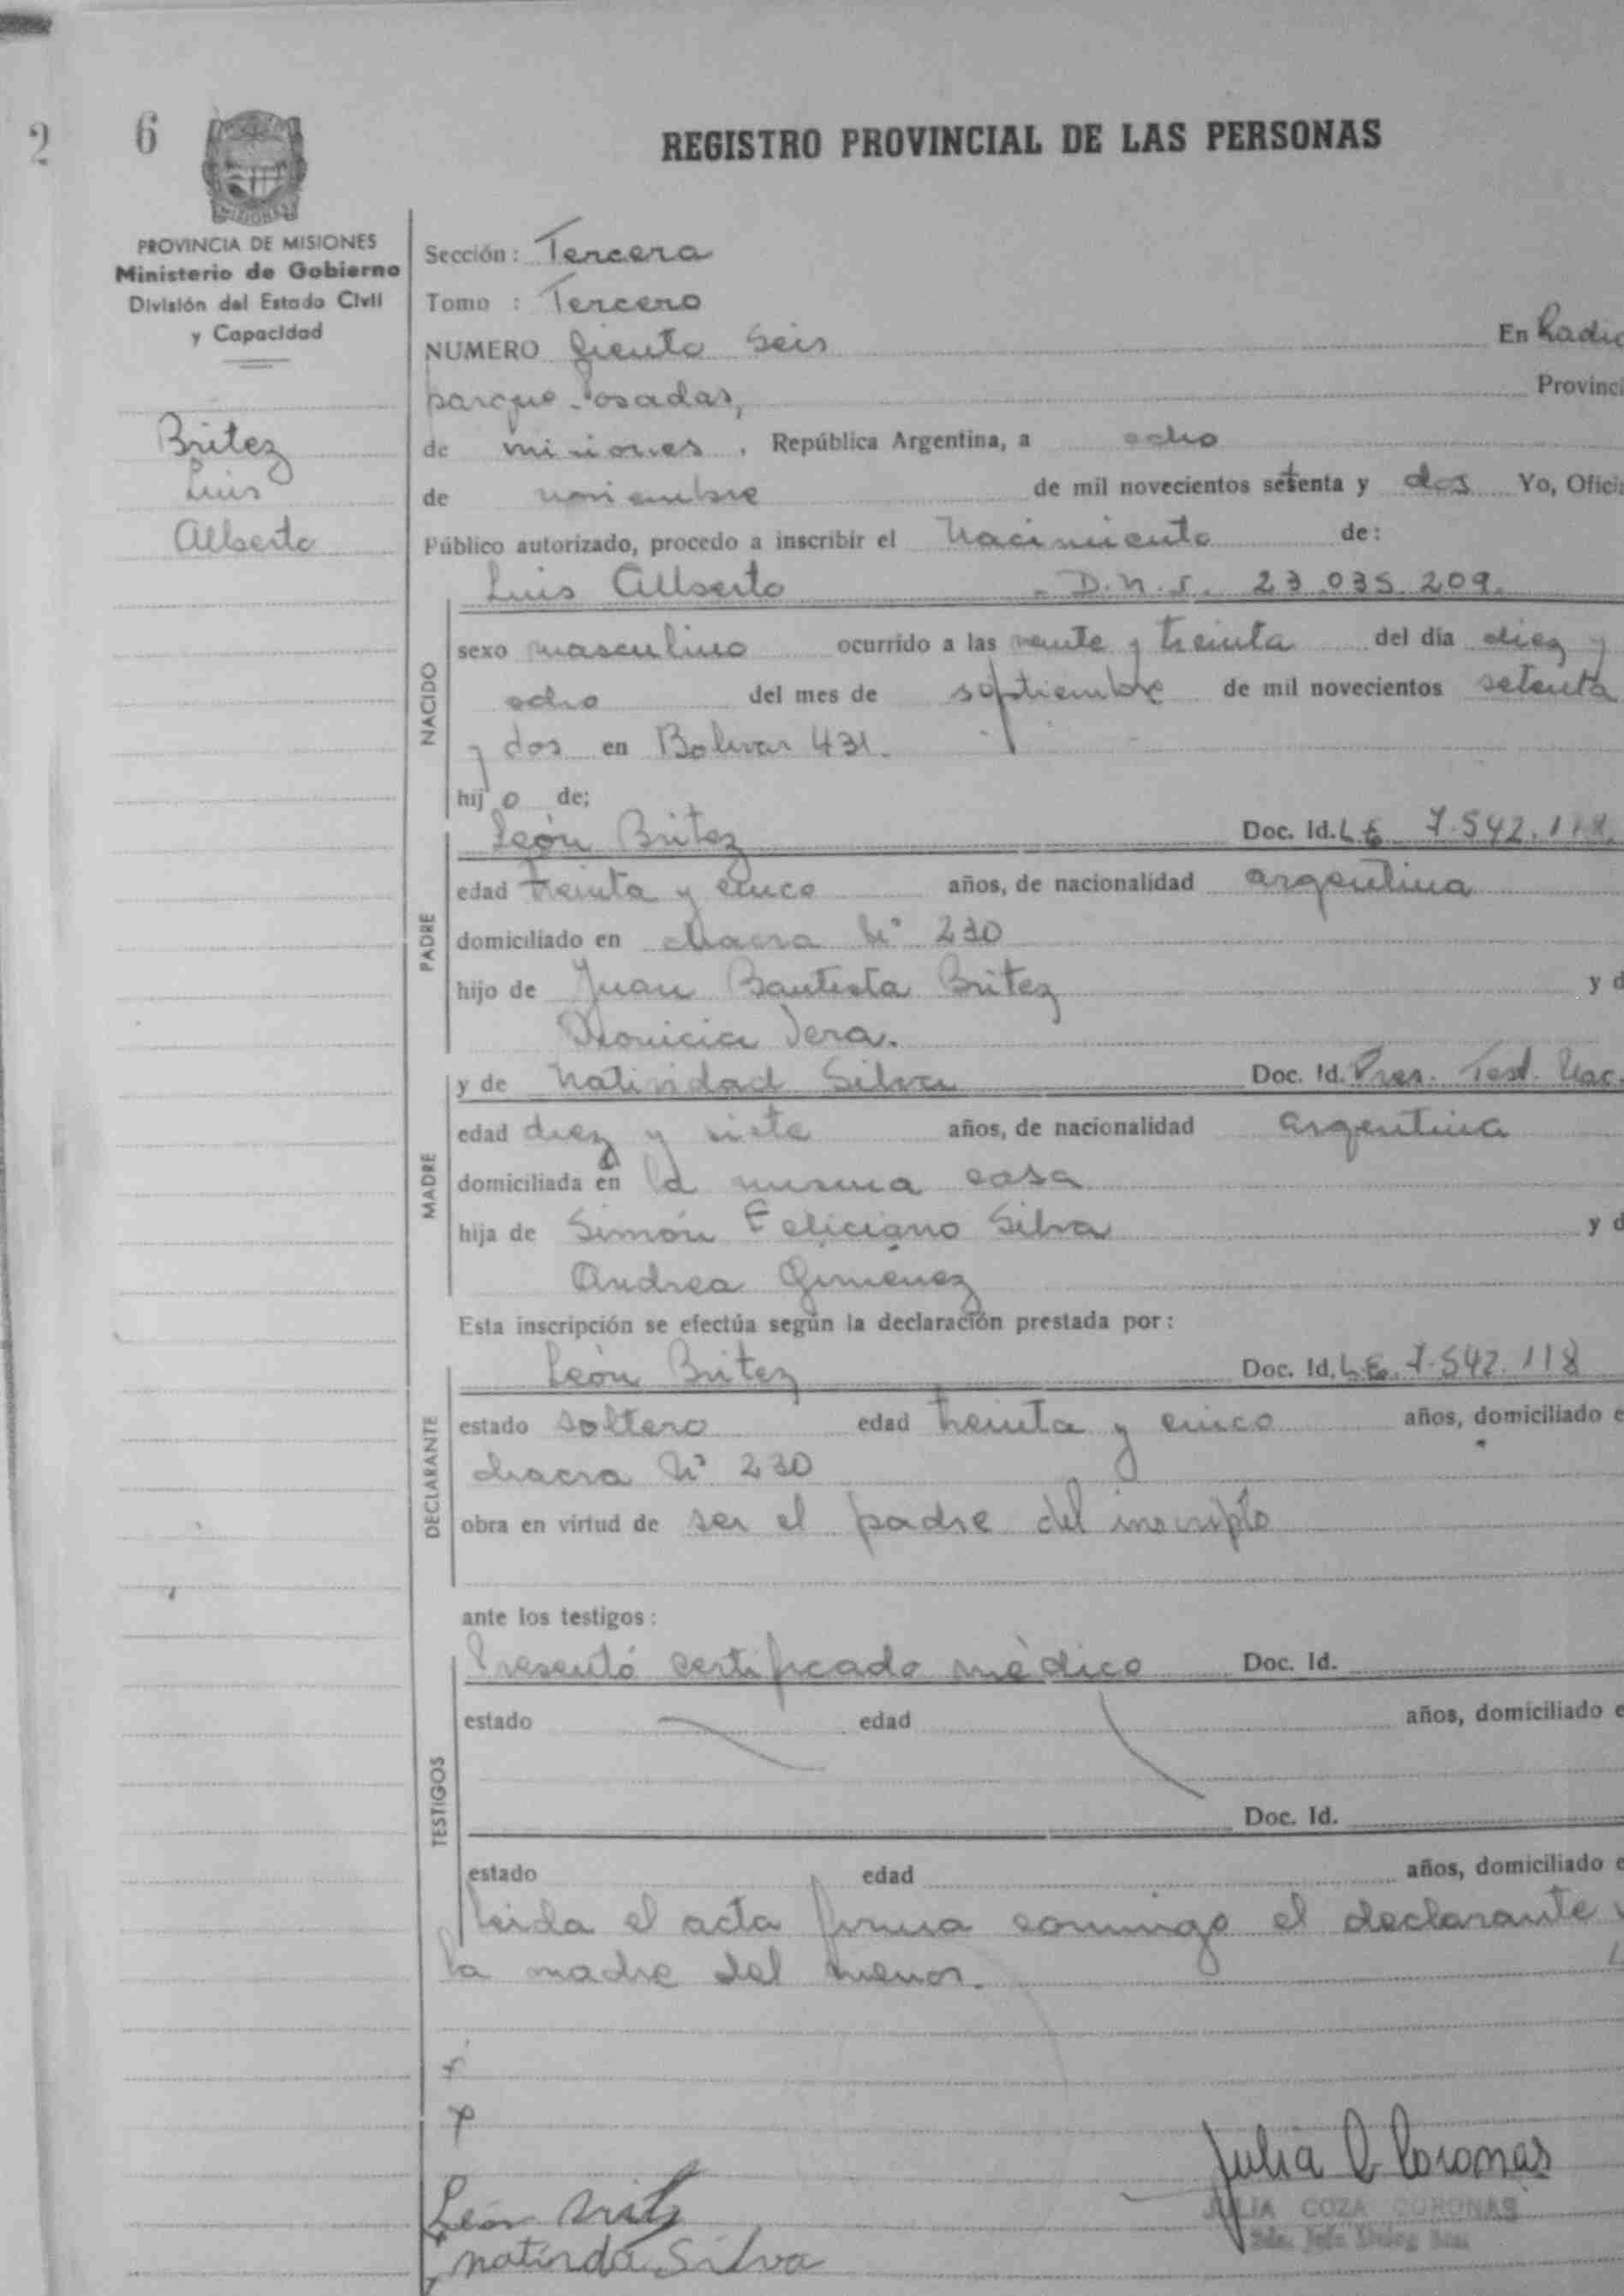 2 6
REGISTRO PROVINCIAL DE LAS PERSONAS
MISIONES
PROVINCIA DE MISIONES
Ministerio de Gobierno
División del Estado Civil
y Capacidad
Britez
Luis
Alberto
Sección: Tercera
Tomo : Tercero
NUMERO Ciento Seis En Radic
parque Posadas, Provinci
de misiones, República Argentina, a ocho
de noviembre de mil novecientos setenta y dos Yo, Oficia
Público autorizado, procedo a inscribir el Nacimiento de:
NACIDO
Luis Alberto - D.N.I. 23.035.209.
sexo masculino ocurrido a las veinte y treinta del día diez y
ocho del mes de septiembre de mil novecientos setenta
y dos en Bolivar 431.
hijo de;
PADRE
León Britez Doc. Id. LE 7.542.118.
edad treinta y cinco años, de nacionalidad argentina
domiciliado en chacra Nº 230
hijo de Juan Bautista Britez y d
Dionicia Vera.
MADRE
y de Natividad Silva Doc. Id. Pres. Test. Nac.
edad diez y siete años, de nacionalidad argentina
domiciliada en la misma casa
hija de Simón Feliciano Silva y d
Andrea Gimenez
Esta inscripción se efectúa según la declaración prestada por:
DECLARANTE
León Britez Doc. Id. LE. 7.542.118
estado soltero edad treinta y cinco años, domiciliado e
chacra Nº 230
obra en virtud de ser el padre del inscripto
ante los testigos:
TESTIGOS
Presentó certificado médico Doc. Id.
estado edad años, domiciliado e
Doc. Id.
estado edad años, domiciliado e
leida el acta firma conmigo el declarante y
la madre del menor.
x
x
Julia C Coronas
JULIA COZA CORONAS
León Britz
natividá Silva